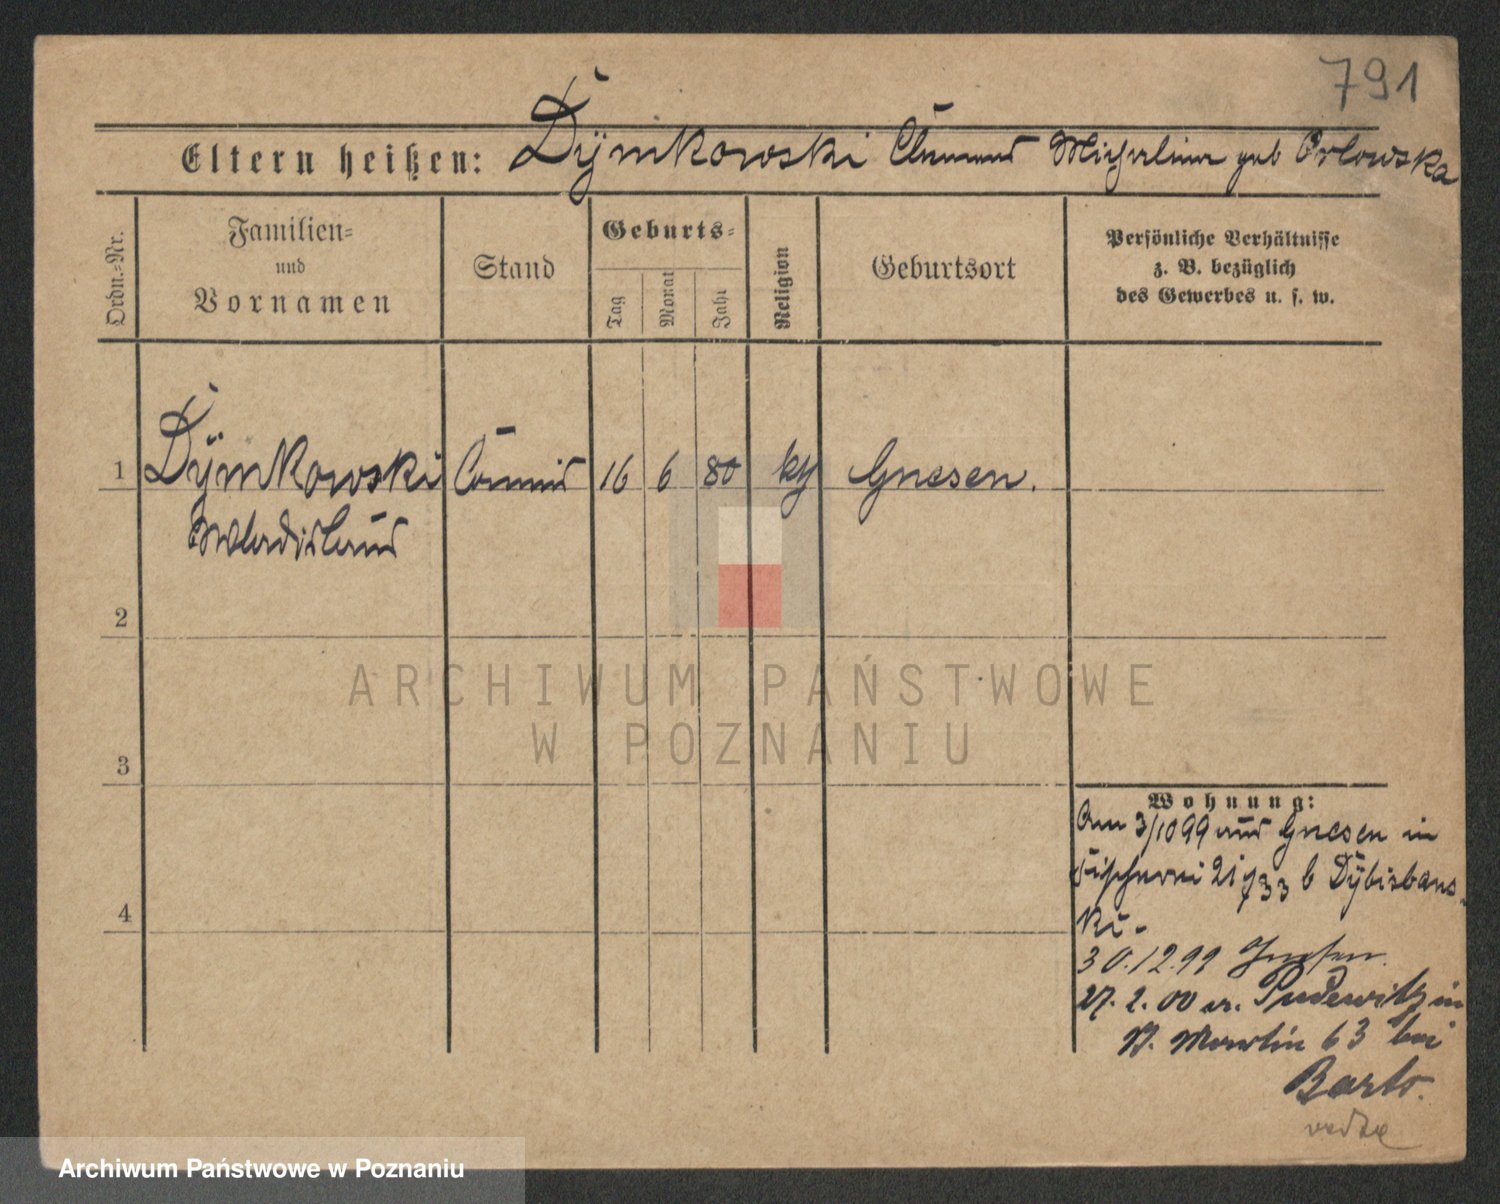 791
Eltern heißen: Dÿmkowski Clemens Michalina geb Orlowska
Ordn.=Nr.
Familien=
und
Vornamen
Stand
Geburts=
Tag
Monat
Jahr
Religion
Geburtsort
Persönliche Verhältnisse
z. B. bezüglich
des Gewerbes u. s. w.
1 Dÿmkowski Commis 16 6 80 kth Gnesen.
Wladislaus
2
3
4
Wohnung:
Am 3/10 99 aus Gnesen in
Fischerei 21/33 b Dÿbisbans-
ki.
30.12.99
27. 2. 00 v. Pudewitz in
St. Martin 63 bei
Barto.
ARCHIWUM PAŃSTWOWE
W POZNANIU
Archiwum Państwowe w Poznaniu